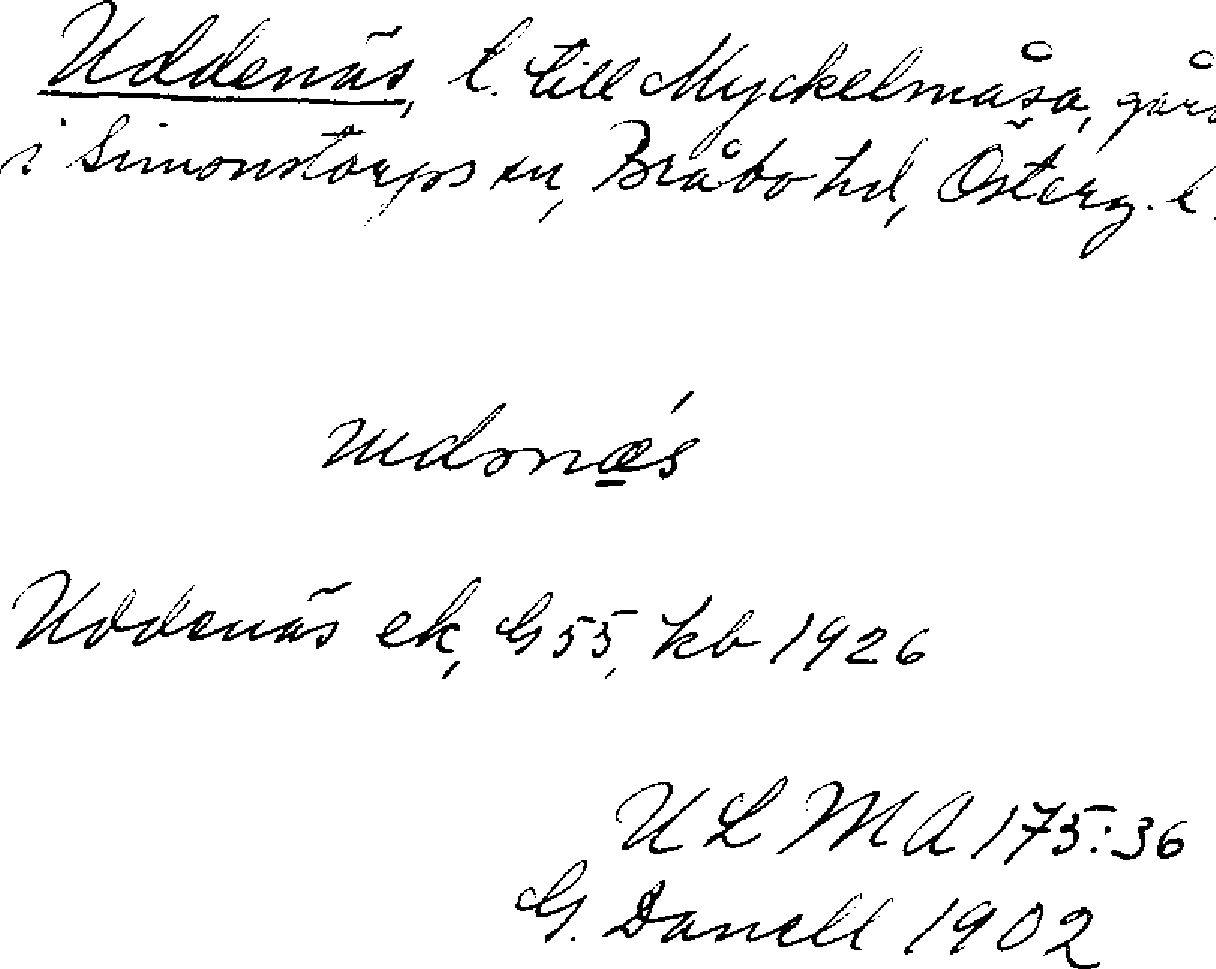 Uddenäs, l. till Myckelmåsa, går
i Simonstorps sn, Bråbo hd, Österg. l.
Uddenäs ek, G55, kb 1926
ULMA 175:36
G. Danell 1902